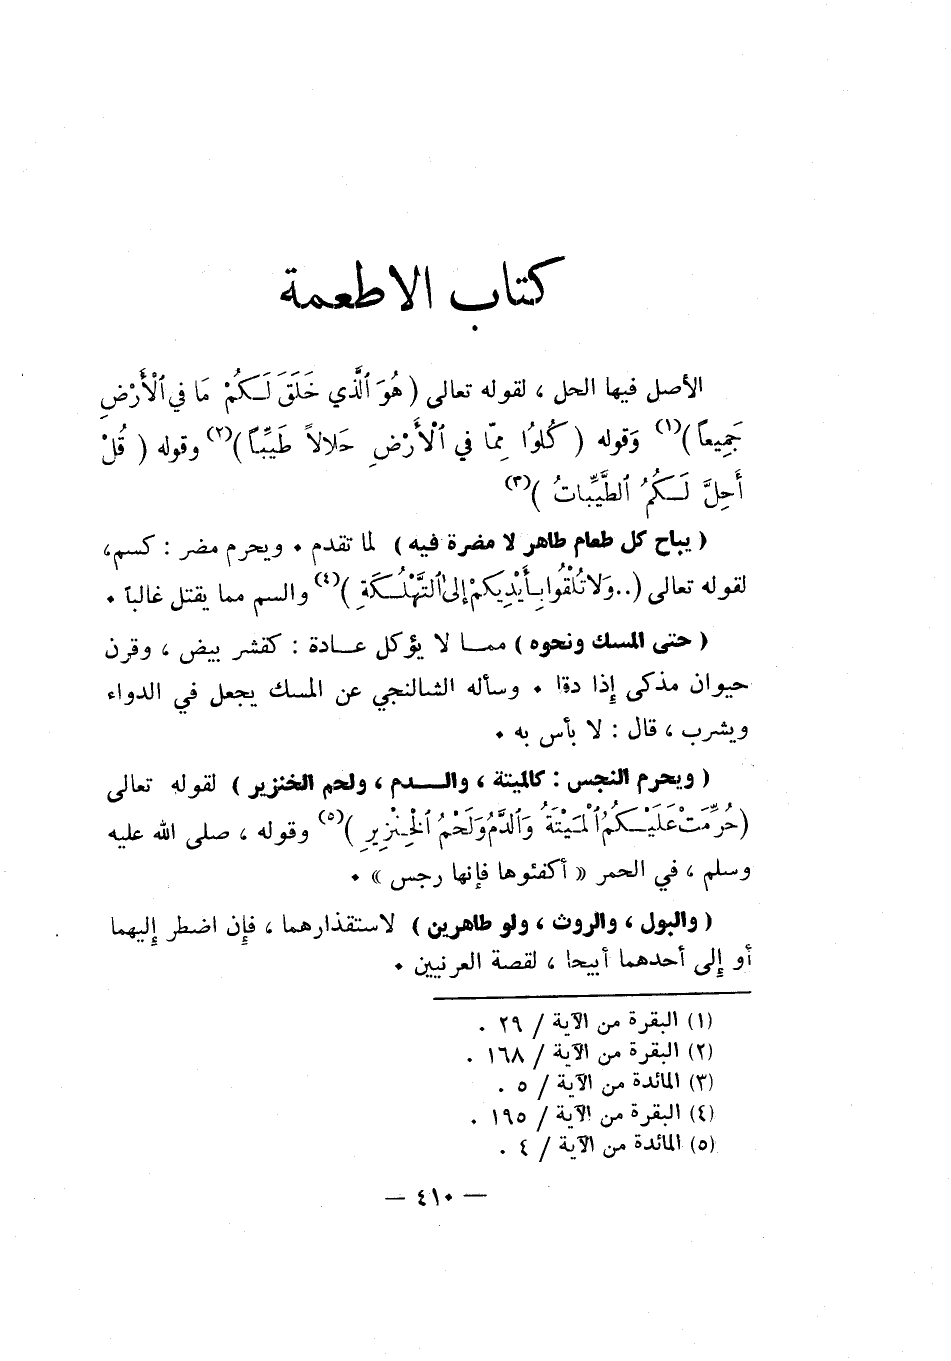 كتاب الاطعمة
الأصل فيها الحل ، لقوله تعالى ( هُوَ ٱلَّذي خَلَقَ لَكُمْ مَا في ٱلْأَرْضِ
جَمِيعاً )(١) وَقوله ( كُلُوا مِمّا في ٱلْأَرْضِ حَلالاً طَيِّباً )(٢) وقوله ( قُلْ
أُحِلَّ لَكُمُ ٱلطَّيِّباتُ )(٣)
( يباح كل طعام طاهر لا مضرة فيه ) لما تقدم . ويحرم مضر : كسم،
لقوله تعالى (..وَلا تُلْقُوا بِأَيْدِيكُمْ إِلى ٱلتَّهْلُكَةِ )(٤) والسم مما يقتل غالباً .
( حتى المسك ونحوه ) مما لا يؤكل عادة : كقشر بيض ، وقرن
حيوان مذكى إِذا دقا . وسأله الشالنجي عن المسك يجعل في الدواء
ويشرب ، قال : لا بأس به .
( ويحرم النجس : كالميتة ، والدم ، ولحم الخنزير ) لقوله تعالى
(حُرِّمَتْ عَلَيْكُمُ ٱلْمَيْتَةُ وَٱلدَّمُ وَلَحْمُ ٱلْخِنْزِيرِ )(٥) وقوله ، صلى الله عليه
وسلم ، في الحمر « أكفئوها فإنها رجس » .
( والبول ، والروث ، ولو طاهرين ) لاستقذارهما ، فإِن اضطر إِليهما
أو إِلى أحدهما أبيحا ، لقصة العرنيين .
(١) البقرة من الآية / ٢٩ .
(٢) البقرة من الآية / ١٦٨ .
(٣) المائدة من الآية / ٥ .
(٤) البقرة من الآية / ١٩٥ .
(٥) المائدة من الآية / ٤ .
— ٤١٠ —